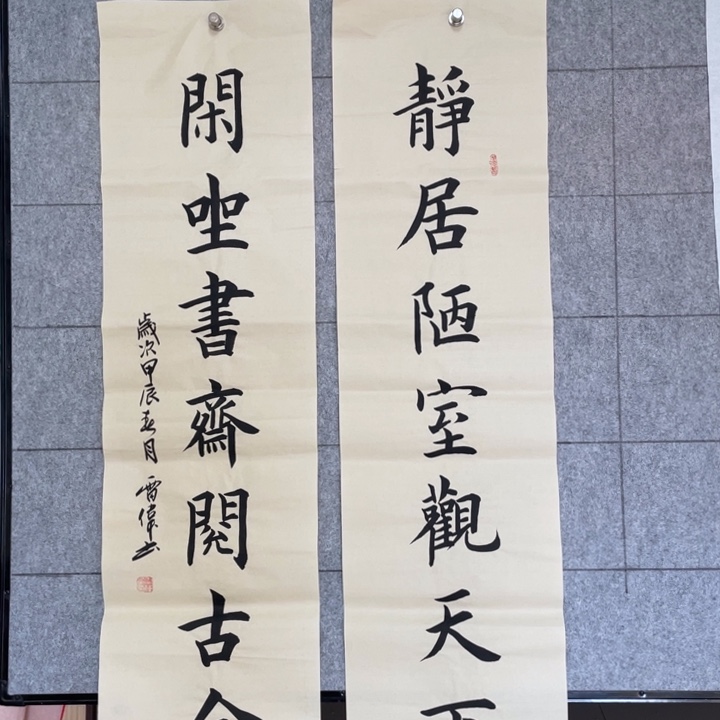 靜居陋室觀天下
閑坐書齋閱古今
歲次甲辰春月 雷偉书